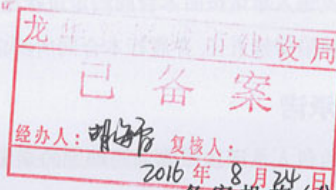 龙华 城市建设局
已备案
经办人：胡海 复核人：
2016年8月24日